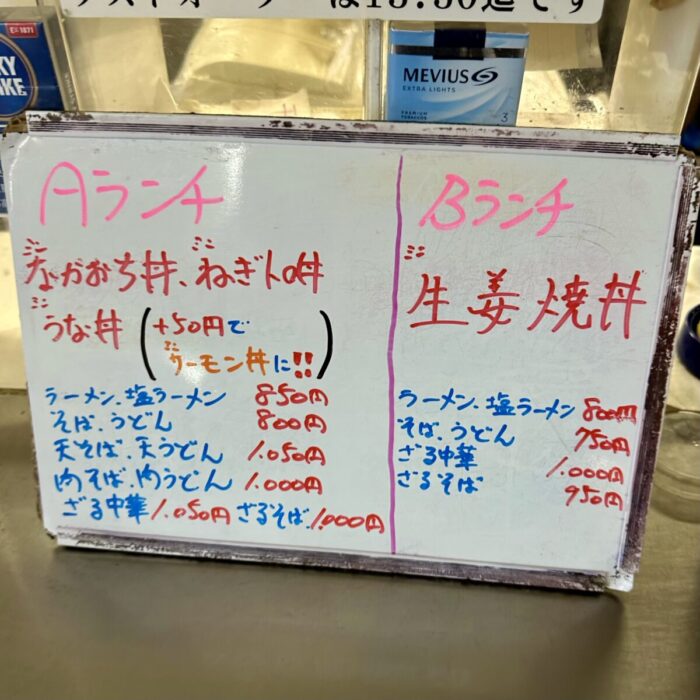 ラストオーダーは13:30迄です
E 1871
MEVIUS
EXTRA LIGHTS
3
Aランチ
ミニ ミニ
なかおち丼、ねぎトロ丼
ミニ
うな丼 (+50円で
ミニ
サーモン丼に!!)
ラーメン、塩ラーメン 850円
そば、うどん 800円
天そば、天うどん 1.050円
肉そば、肉うどん 1.000円
ざる中華 1.050円 ざるそば 1.000円
Bランチ
ミニ
生姜焼丼
ラーメン、塩ラーメン 800円
そば、うどん 750円
ざる中華 1.000円
ざるそば 950円